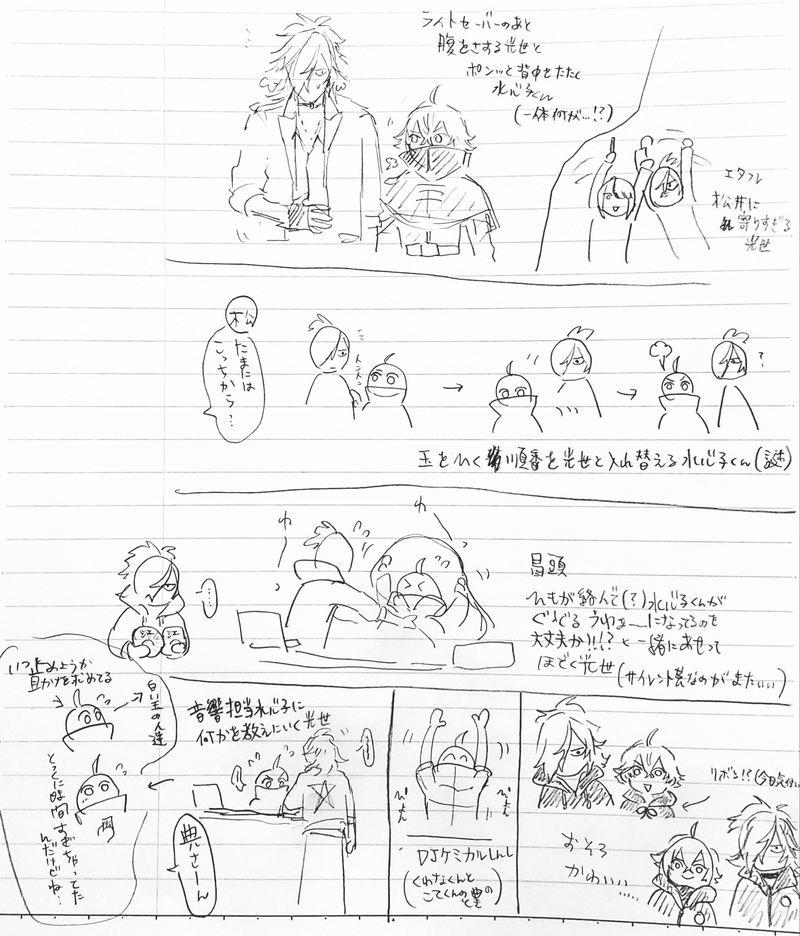 ライトセーバーのあと
腹をさする光世と
ポンッと背中をたたく
水心子くん
(一体何が…!?)
エタフレ
松井に
寄りすぎる
光世
松
たまには
こっちから…
トントン
?
玉をひく順番を光世と入れ替える水心子くん(謎)
わ
わ
冒頭
ひもが絡んで(?)水心子くんが
ぐるぐるうわぁ〜になってるのを
大丈夫か!!!?と一緒にあせって
ほどく光世
(サイレント芸なのがまたいい)
…
江
江
いつ止めようか
白い玉の人達
とっくに時間すぎちゃってた
んだけどね…
音響担当水心子に
何かを教えにいく光世
典さーん
DJケミカルしんし
リボン!?
おそろ
かわいい……